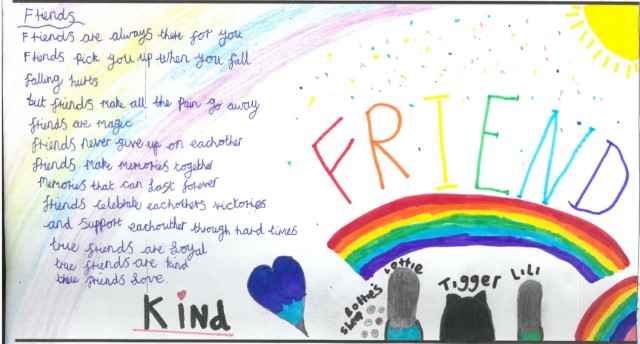 Friends
Friends are always there for you
Friends pick you up when you fall
falling hurts
but friends make all the pain go away
friends are magic
friends never give up on eachother
friends make memories together
Memories that can last forever
friends celebrate eachothers victories
and support eachouther through hard times
true friends are loyal
true friends are kind
true friends love
Kind
FRIEND
Lottie's sheep
Lottie
Tigger
Lili